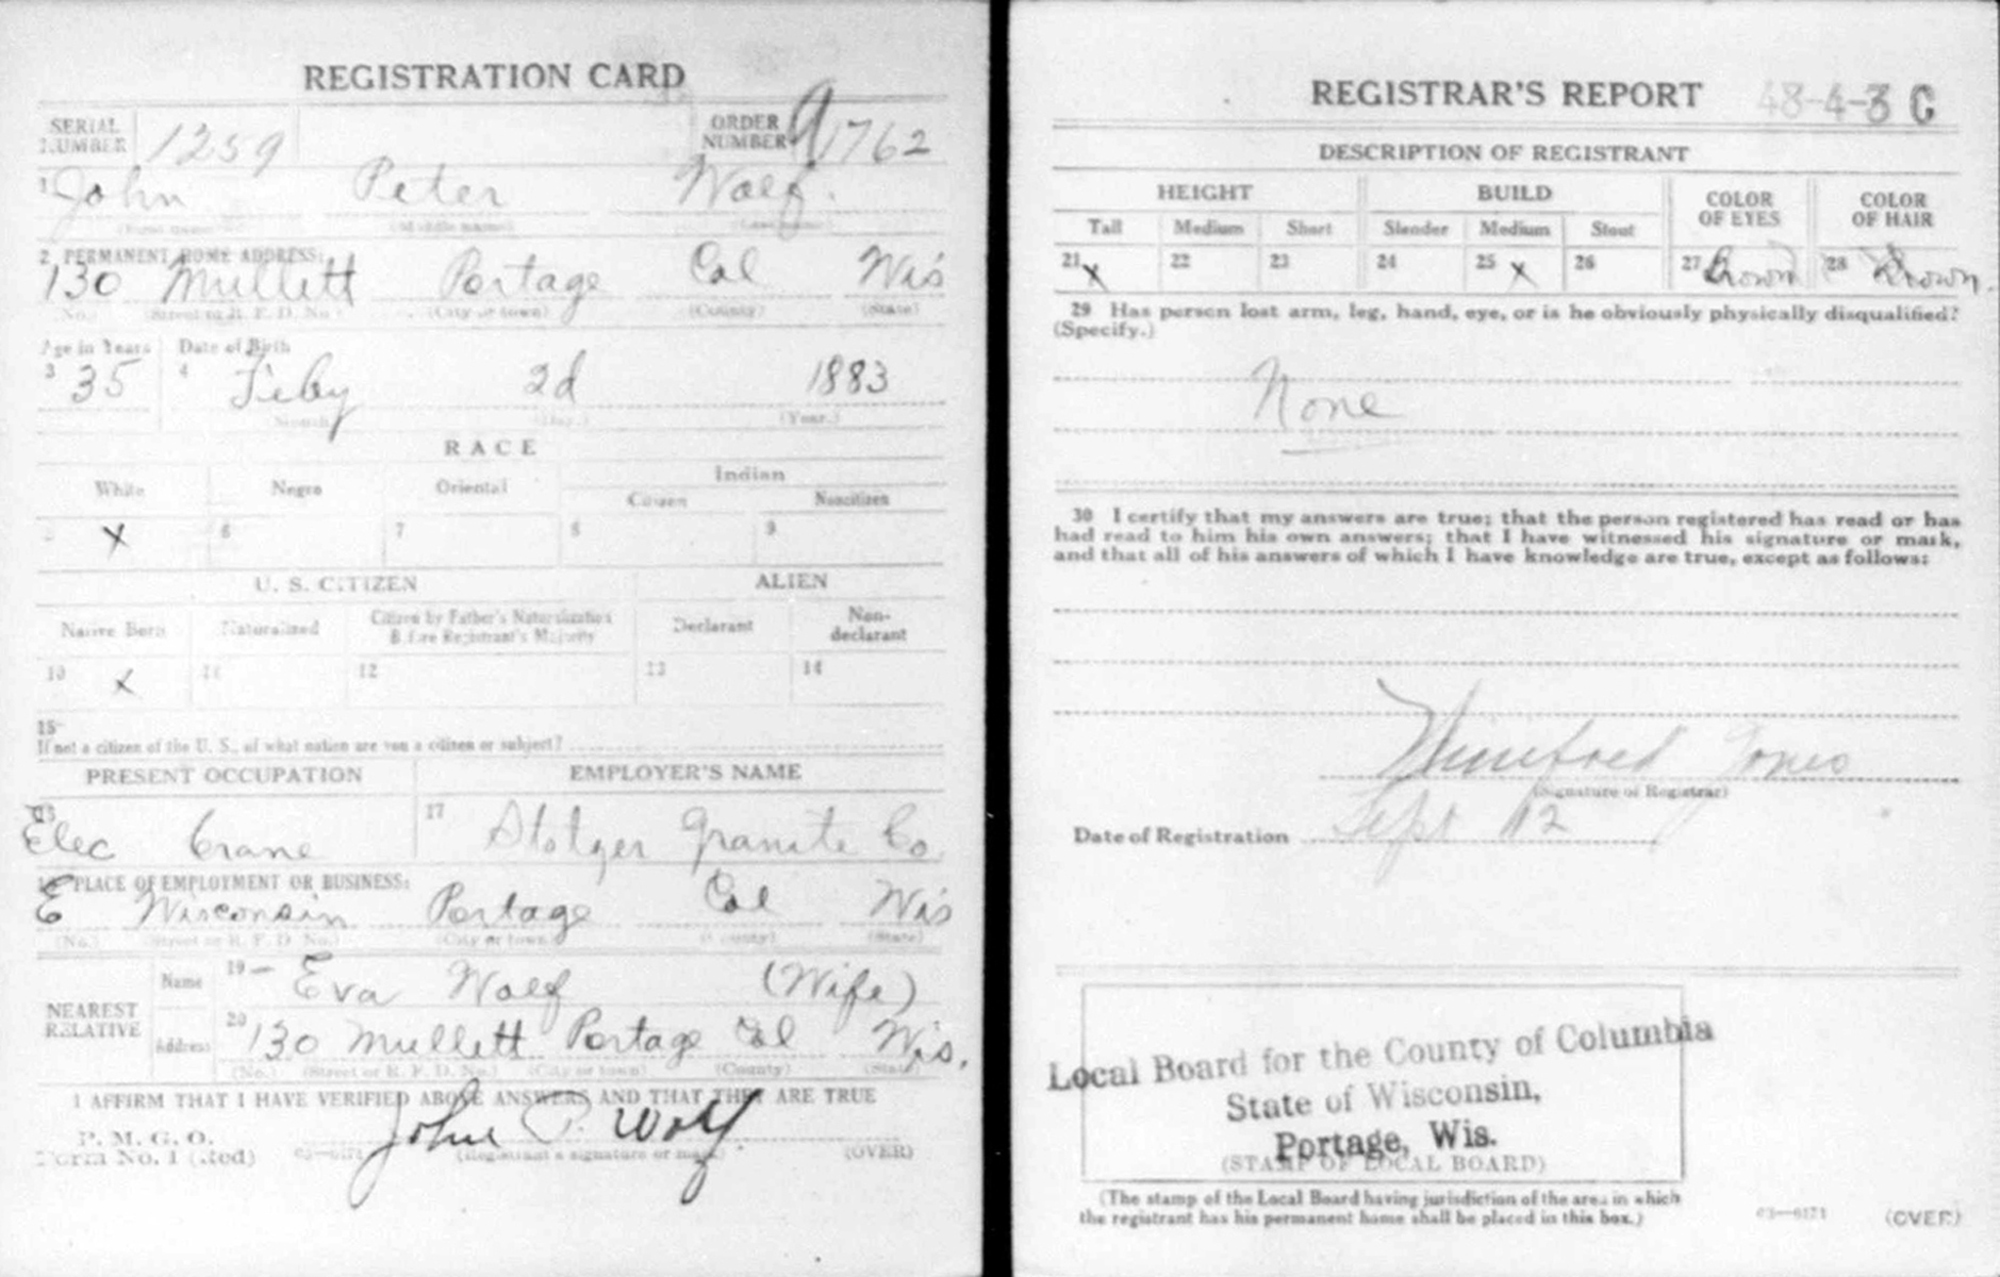 REGISTRATION CARD
SERIAL NUMBER 1259 ORDER NUMBER A1762
1 John Peter Wolf.
(First name) (Middle name) (Last name)
2 PERMANENT HOME ADDRESS:
130 Mullett Portage Col Wis
(No.) (Street or R. F. D. No.) (City or town) (County) (State)
Age in Years Date of Birth
3 35 4 Feby 2d 1883
(Month.) (Day.) (Year.)
RACE
White Negro Oriental Indian
Citizen Noncitizen
X 6 7 8 9
U. S. CITIZEN ALIEN
Native Born Naturalized Citizen by Father's Naturalization Before Registrant's Majority Declarant Non-declarant
10 X 11 12 13 14
15
If not a citizen of the U. S., of what nation are you a citizen or subject?
PRESENT OCCUPATION EMPLOYER'S NAME
16 Elec Crane 17 Stotzer Granite Co.
18 PLACE OF EMPLOYMENT OR BUSINESS:
E Wisconsin Portage Col Wis
(No.) (Street or R. F. D. No.) (City or town) (County) (State)
NEAREST RELATIVE
Name 19 — Eva Wolf (Wife)
Address 20 130 Mullett Portage Col Wis.
(No.) (Street or R. F. D. No.) (City or town) (County) (State)
I AFFIRM THAT I HAVE VERIFIED ABOVE ANSWERS AND THAT THEY ARE TRUE
P. M. G. O.
Form No. 1 (Red) 03—6171 John P. Wolf
(Registrant's signature or mark) (OVER)
REGISTRAR'S REPORT 48-4-3 C
DESCRIPTION OF REGISTRANT
HEIGHT BUILD COLOR OF EYES COLOR OF HAIR
Tall Medium Short Slender Medium Stout
21 X 22 23 24 25 X 26 27 Brown 28 Brown.
29 Has person lost arm, leg, hand, eye, or is he obviously physically disqualified?
(Specify.)
None
30 I certify that my answers are true; that the person registered has read or has
had read to him his own answers; that I have witnessed his signature or mark,
and that all of his answers of which I have knowledge are true, except as follows:
Winifred Jones
(Signature of Registrar)
Date of Registration Sept 12
Local Board for the County of Columbia
State of Wisconsin,
Portage, Wis.
(STAMP OF LOCAL BOARD)
(The stamp of the Local Board having jurisdiction of the area in which
the registrant has his permanent home shall be placed in this box.)
03—6171 (OVER)